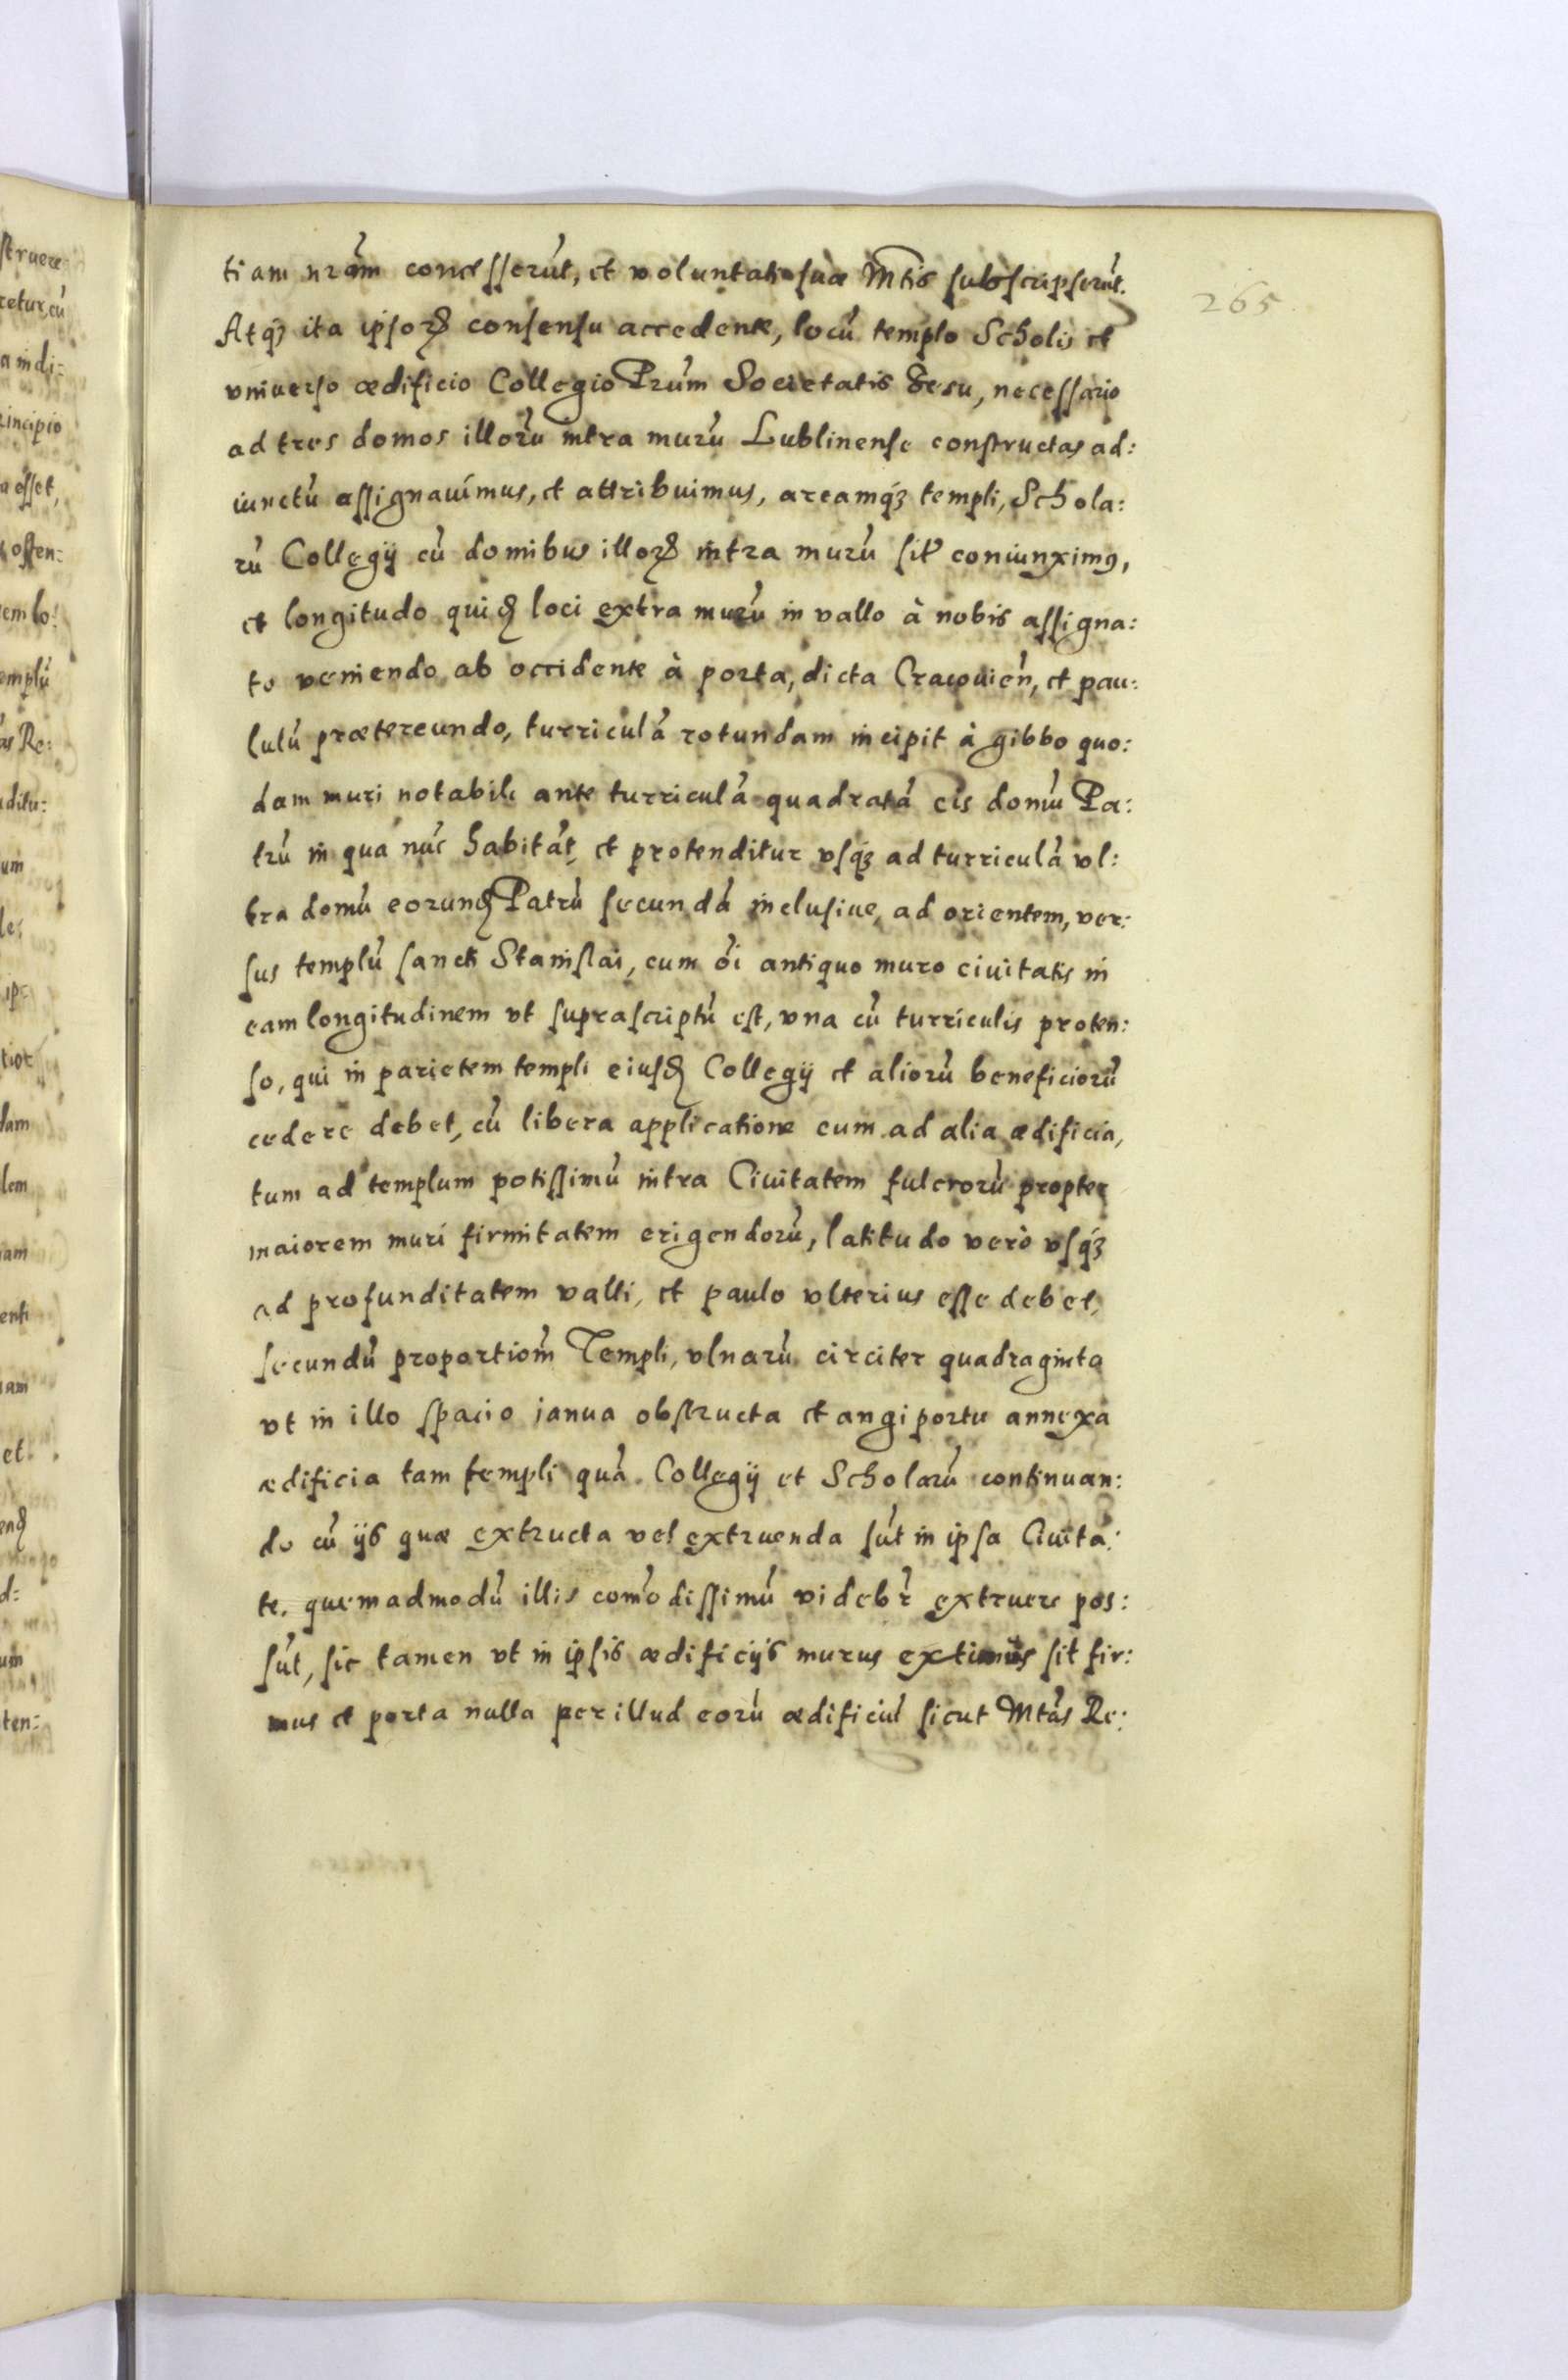 265
tiam nrãm concesserũt, et voluntati suæ Mtis subscripserũt.
Atq₃ ita ipsoꝝ consensu accedente, locũ templo Scholis et
vniuerso ædificio Collegio Prũm Societatis Jesu, necessario
ad tres domos illorũ intra murũ Lublinense constructas ad:
iunctũ assignauimus, et attribuimus, areamq₃ templi, Schola:
rũ Collegij cũ domibus illoꝝ intra murũ silr̃ coniunximꝰ,
et longitudo quiđ loci extra murũ in vallo à nobis assigna:
to veniendo ab occidente à porta, dicta Cracouieñ, et pau:
lulũ prætereundo, turriculã rotundam incipit à gibbo quo:
dam muri notabili ante turriculã quadratã cis domũ Pa:
trũ in qua nũc habitãt, et protenditur vsq₃ ad turriculã vl:
tra domũ eorunđ Patrũ secundã inclusiue, ad orientem, ver:
sus templũ sancti Stanislai, cum õi antiquo muro ciuitatis in
eam longitudinem vt suprascriptũ est, vna cũ turriculis proten:
so, qui in parietem templi eiusđ Collegij et aliorũ beneficiorũ
cedere debet, cũ libera applicatione cum ad alia ædificia,
tum ad templum potissimũ intra Ciuitatem fulcrorũ propter
maiorem muri firmitatem erigendorũ, latitudo verò vsq₃
ad profunditatem valli, et paulo vlterius esse debet,
secundũ proportiom̃ Templi, vlnarũ circiter quadraginta
vt in illo spacio janua obstructa et angiportu annexa
ædificia tam templi quã Collegij et Scholarũ continuan:
do cũ ijs quæ extructa vel extruenda sũt in ipsa Ciuita:
te. quemadmodũ illis com̃odissimũ videbr̃ extruere pos:
sũt, sic tamen vt in ipsis ædificijs murus extimus sit fir:
mus et porta nulla per illud eorũ ædificiũ sicut Mtãs Re: